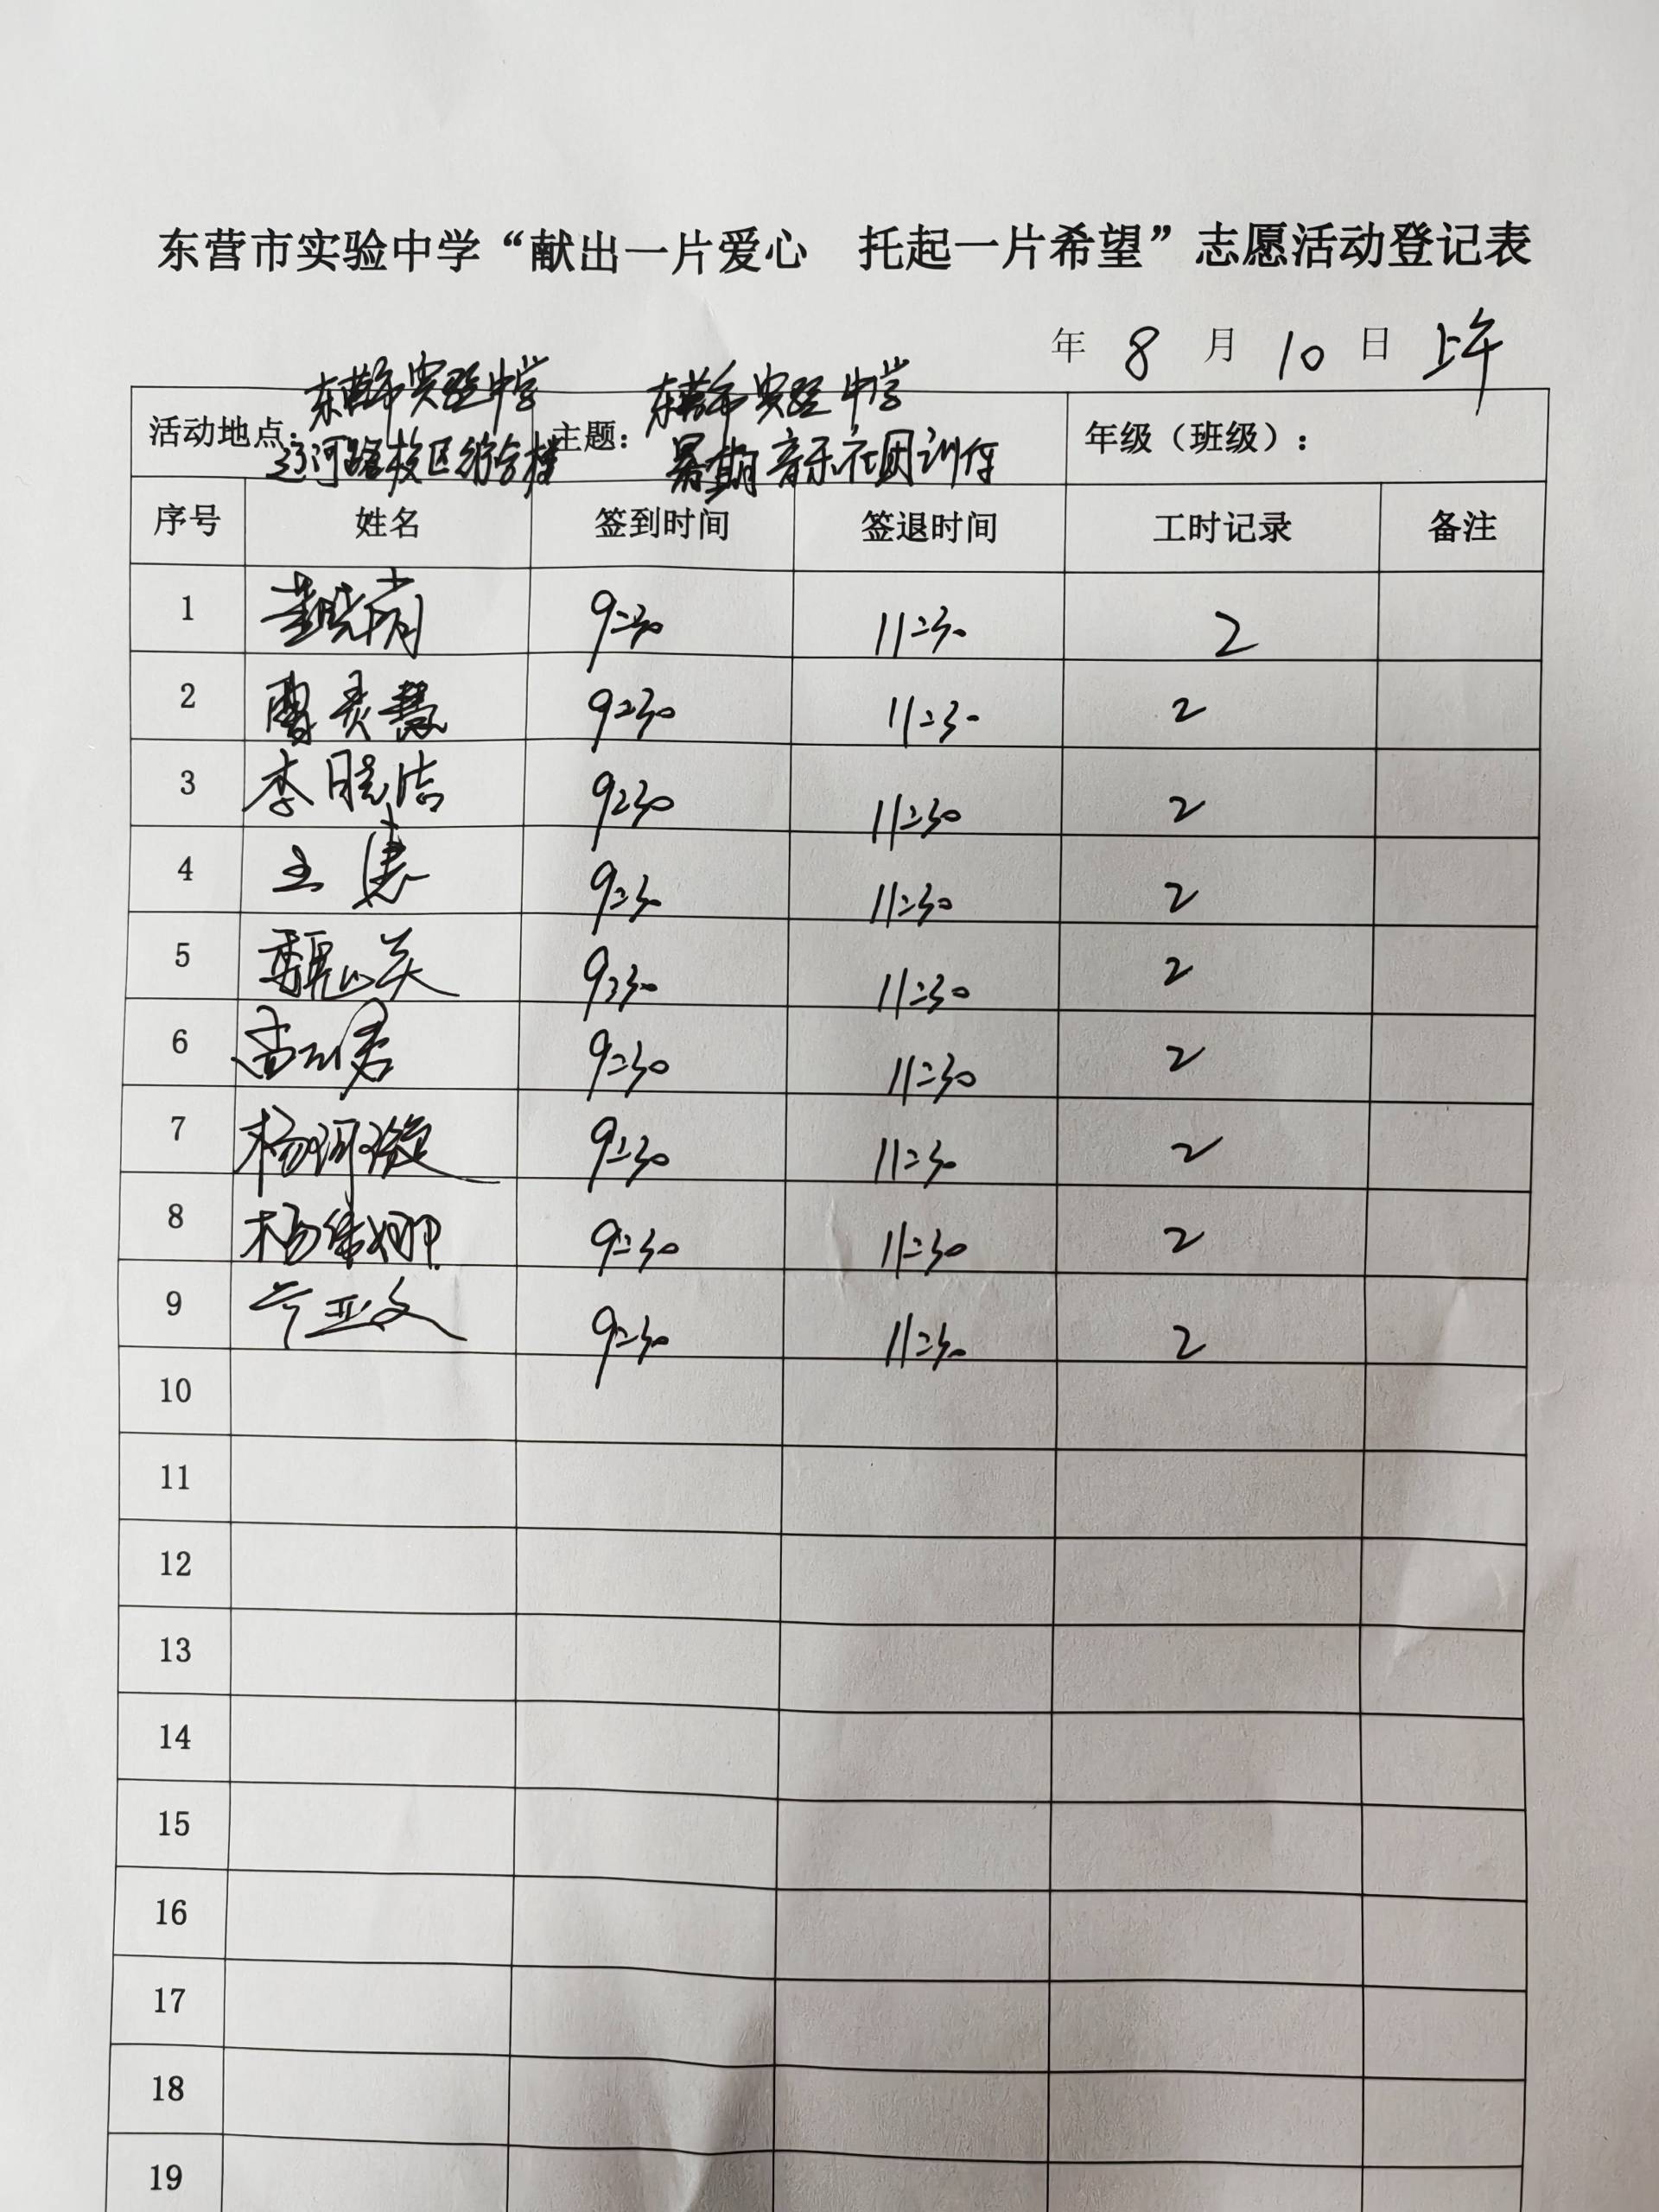 东营市实验中学“献出一片爱心 托起一片希望”志愿活动登记表
年 8 月 10 日 上午
活动地点：东营市实验中学 主题：东营市实验中学 年级（班级）：
辽河路校区综合楼 暑期音乐社团训练
序号 姓名 签到时间 签退时间 工时记录 备注
1 9:30 11:30 2
2 曹灵慧 9:30 11:30 2
3 李晓洁 9:30 11:30 2
4 王惠 9:30 11:30 2
5 9:30 11:30 2
6 9:30 11:30 2
7 杨 9:30 11:30 2
8 杨 娜 9:30 11:30 2
9 亚文 9:30 11:30 2
10
11
12
13
14
15
16
17
18
19